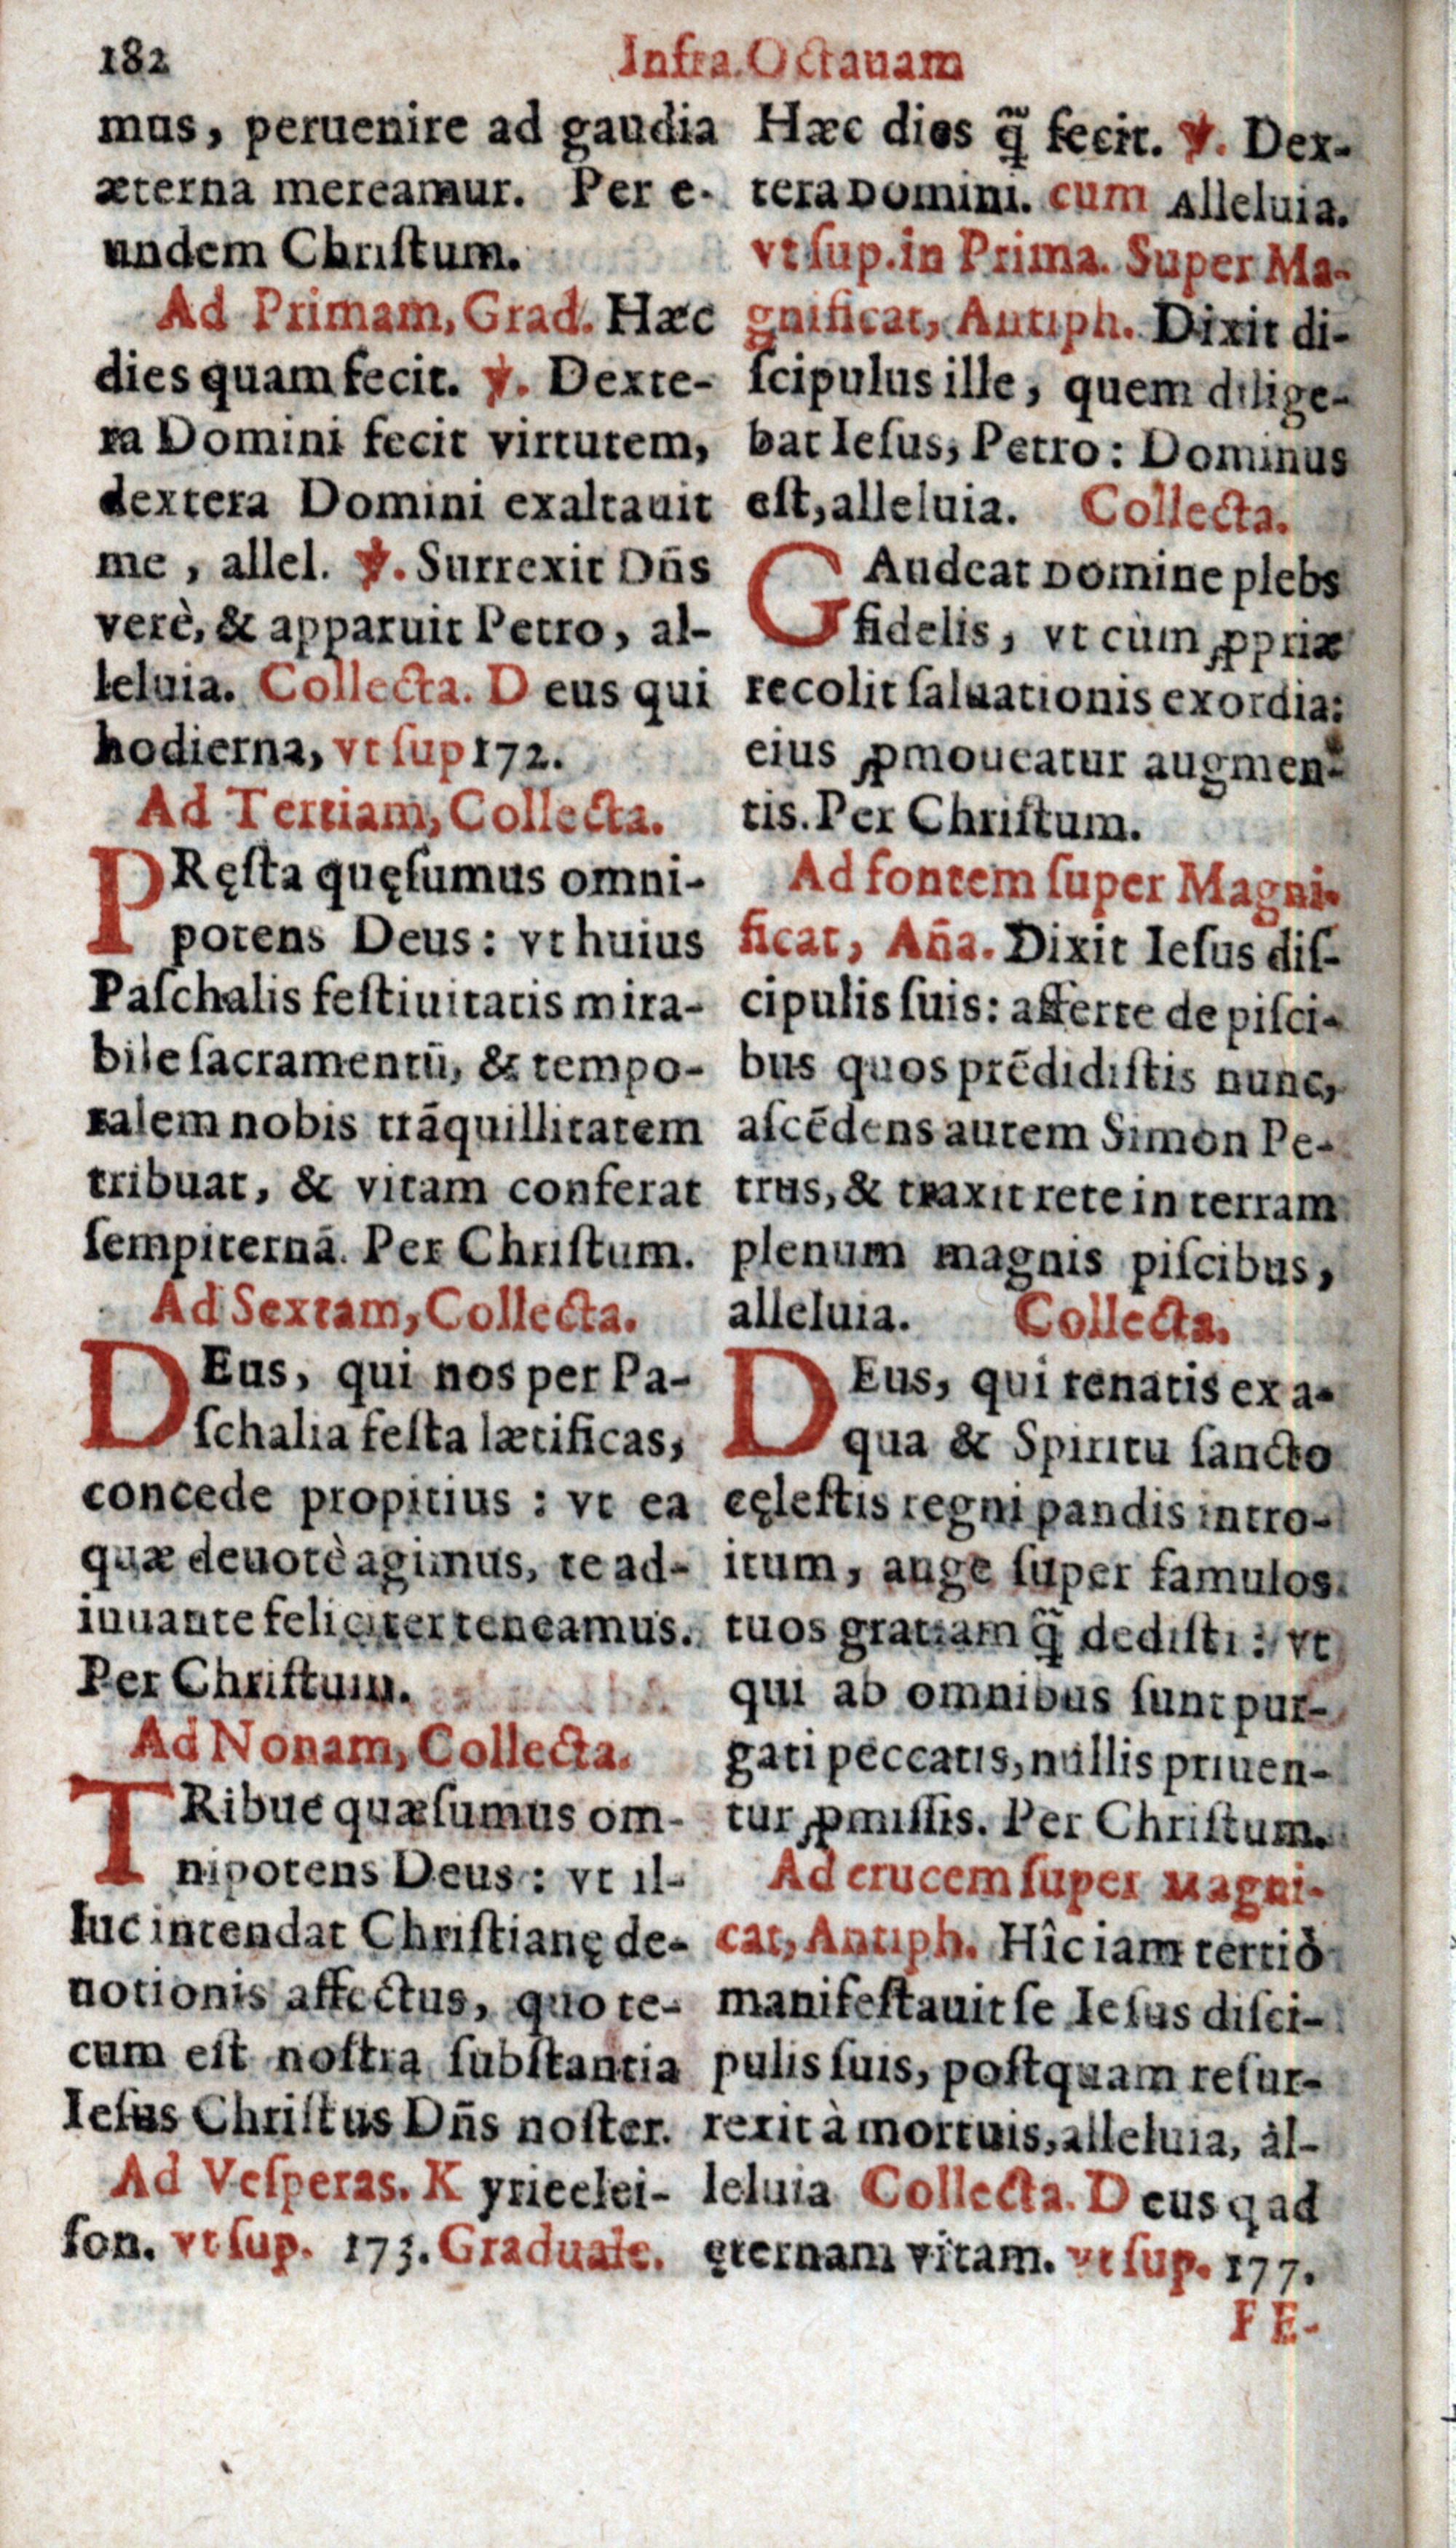 182
Infra Octauam
mus, peruenire ad gaudia
æterna mereamur. Per e-
undem Chriſtum.
Ad Primam, Grad. Hæc
dies quam fecit. ℣. Dexte-
ra Domini fecit virtutem,
dextera Domini exaltauit
me, allel. ℣. Surrexit Dñs
verè, & apparuit Petro, al-
leluia. Collecta. Deus qui
hodierna, vt ſup 172.
Ad Tertiam, Collecta.
PRęſta quęſumus omni-
potens Deus: vt huius
Paſchalis feſtiuitatis mira-
bile ſacramentũ, & tempo-
ralem nobis trãquillitatem
tribuat, & vitam conferat
ſempiternã. Per Chriſtum.
Ad Sextam, Collecta.
DEus, qui nos per Pa-
ſchalia feſta lætificas,
concede propitius: vt ea
quæ deuotè agimus, te ad-
iuuante feliciter teneamus.
Per Chriſtum.
Ad Nonam, Collecta.
TRibue quæſumus om-
nipotens Deus: vt il-
luc intendat Chriſtianę de-
uotionis affectus, quo te-
cum eſt noſtra ſubſtantia
Ieſus Chriſtus Dñs noſter.
Ad Veſperas. Kyrieelei-
ſon. vt ſup. 173. Graduale.
Hæc dies q̃ fecit. ℣. Dex-
tera Domini. cum Alleluia.
vt ſup. in Prima. Super Ma-
gnificat, Antiph. Dixit di-
ſcipulus ille, quem dilige-
bat Ieſus, Petro: Dominus
eſt, alleluia. Collecta.
GAudeat Domine plebs
fidelis, vt cùm ꝓpriæ
recolit ſaluationis exordia:
eius ꝓmoueatur augmen-
tis. Per Chriſtum.
Ad fontem ſuper Magni-
ficat, Aña. Dixit Ieſus diſ-
cipulis ſuis: afferte de piſci-
bus quos prẽdidiſtis nunc,
aſcẽdens autem Simon Pe-
trus, & traxit rete in terram
plenum magnis piſcibus,
alleluia. Collecta.
DEus, qui renatis ex a-
qua & Spiritu ſancto
cęleſtis regni pandis intro-
itum, auge ſuper famulos
tuos gratiam q̃ dediſti: vt
qui ab omnibus ſunt pur-
gati peccatis, nullis priuen-
tur ꝓmiſſis. Per Chriſtum.
Ad crucem ſuper Magni-
cat, Antiph. Hîc iam tertiò
manifeſtauit ſe Ieſus diſci-
pulis ſuis, poſtquam reſur-
rexit à mortuis, alleluia, al-
leluia Collecta. Deus q ad
ęternam vitam. vt ſup. 177.
FE-